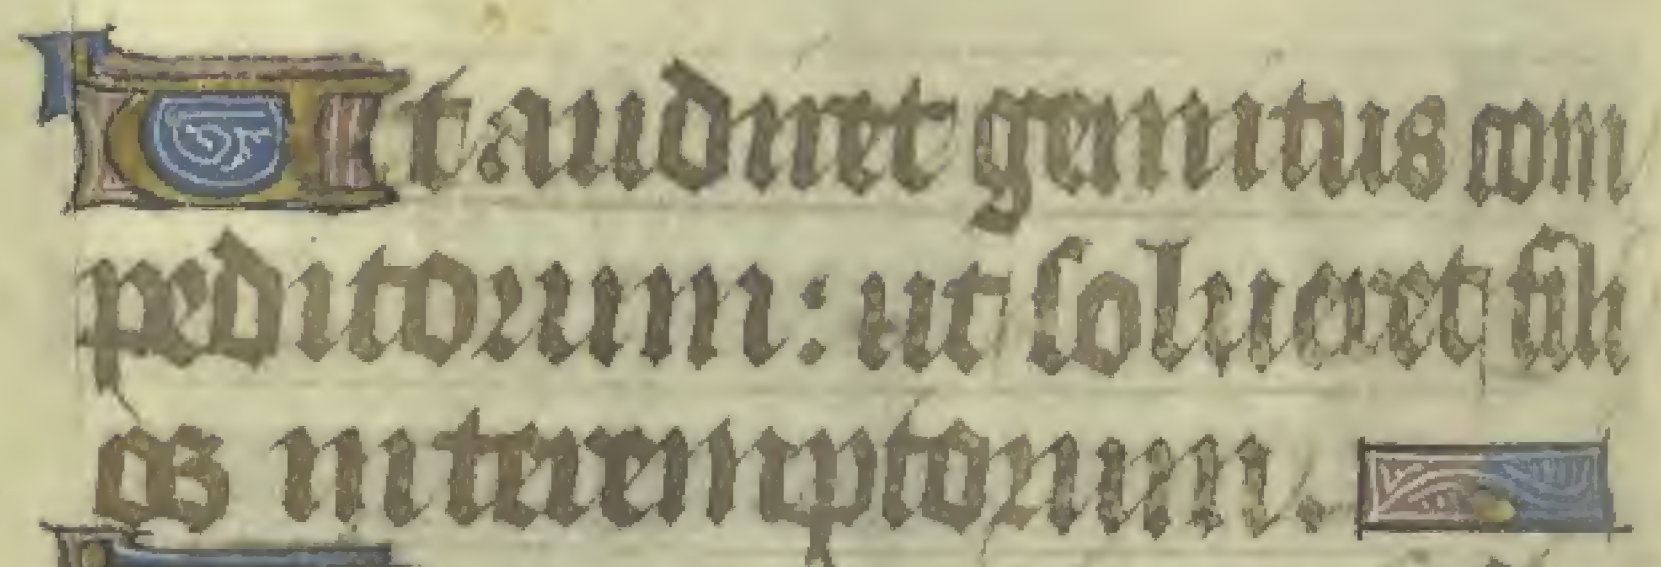 Ut audiret gemitus com
peditorum: ut solueret fili
os interemptorum.